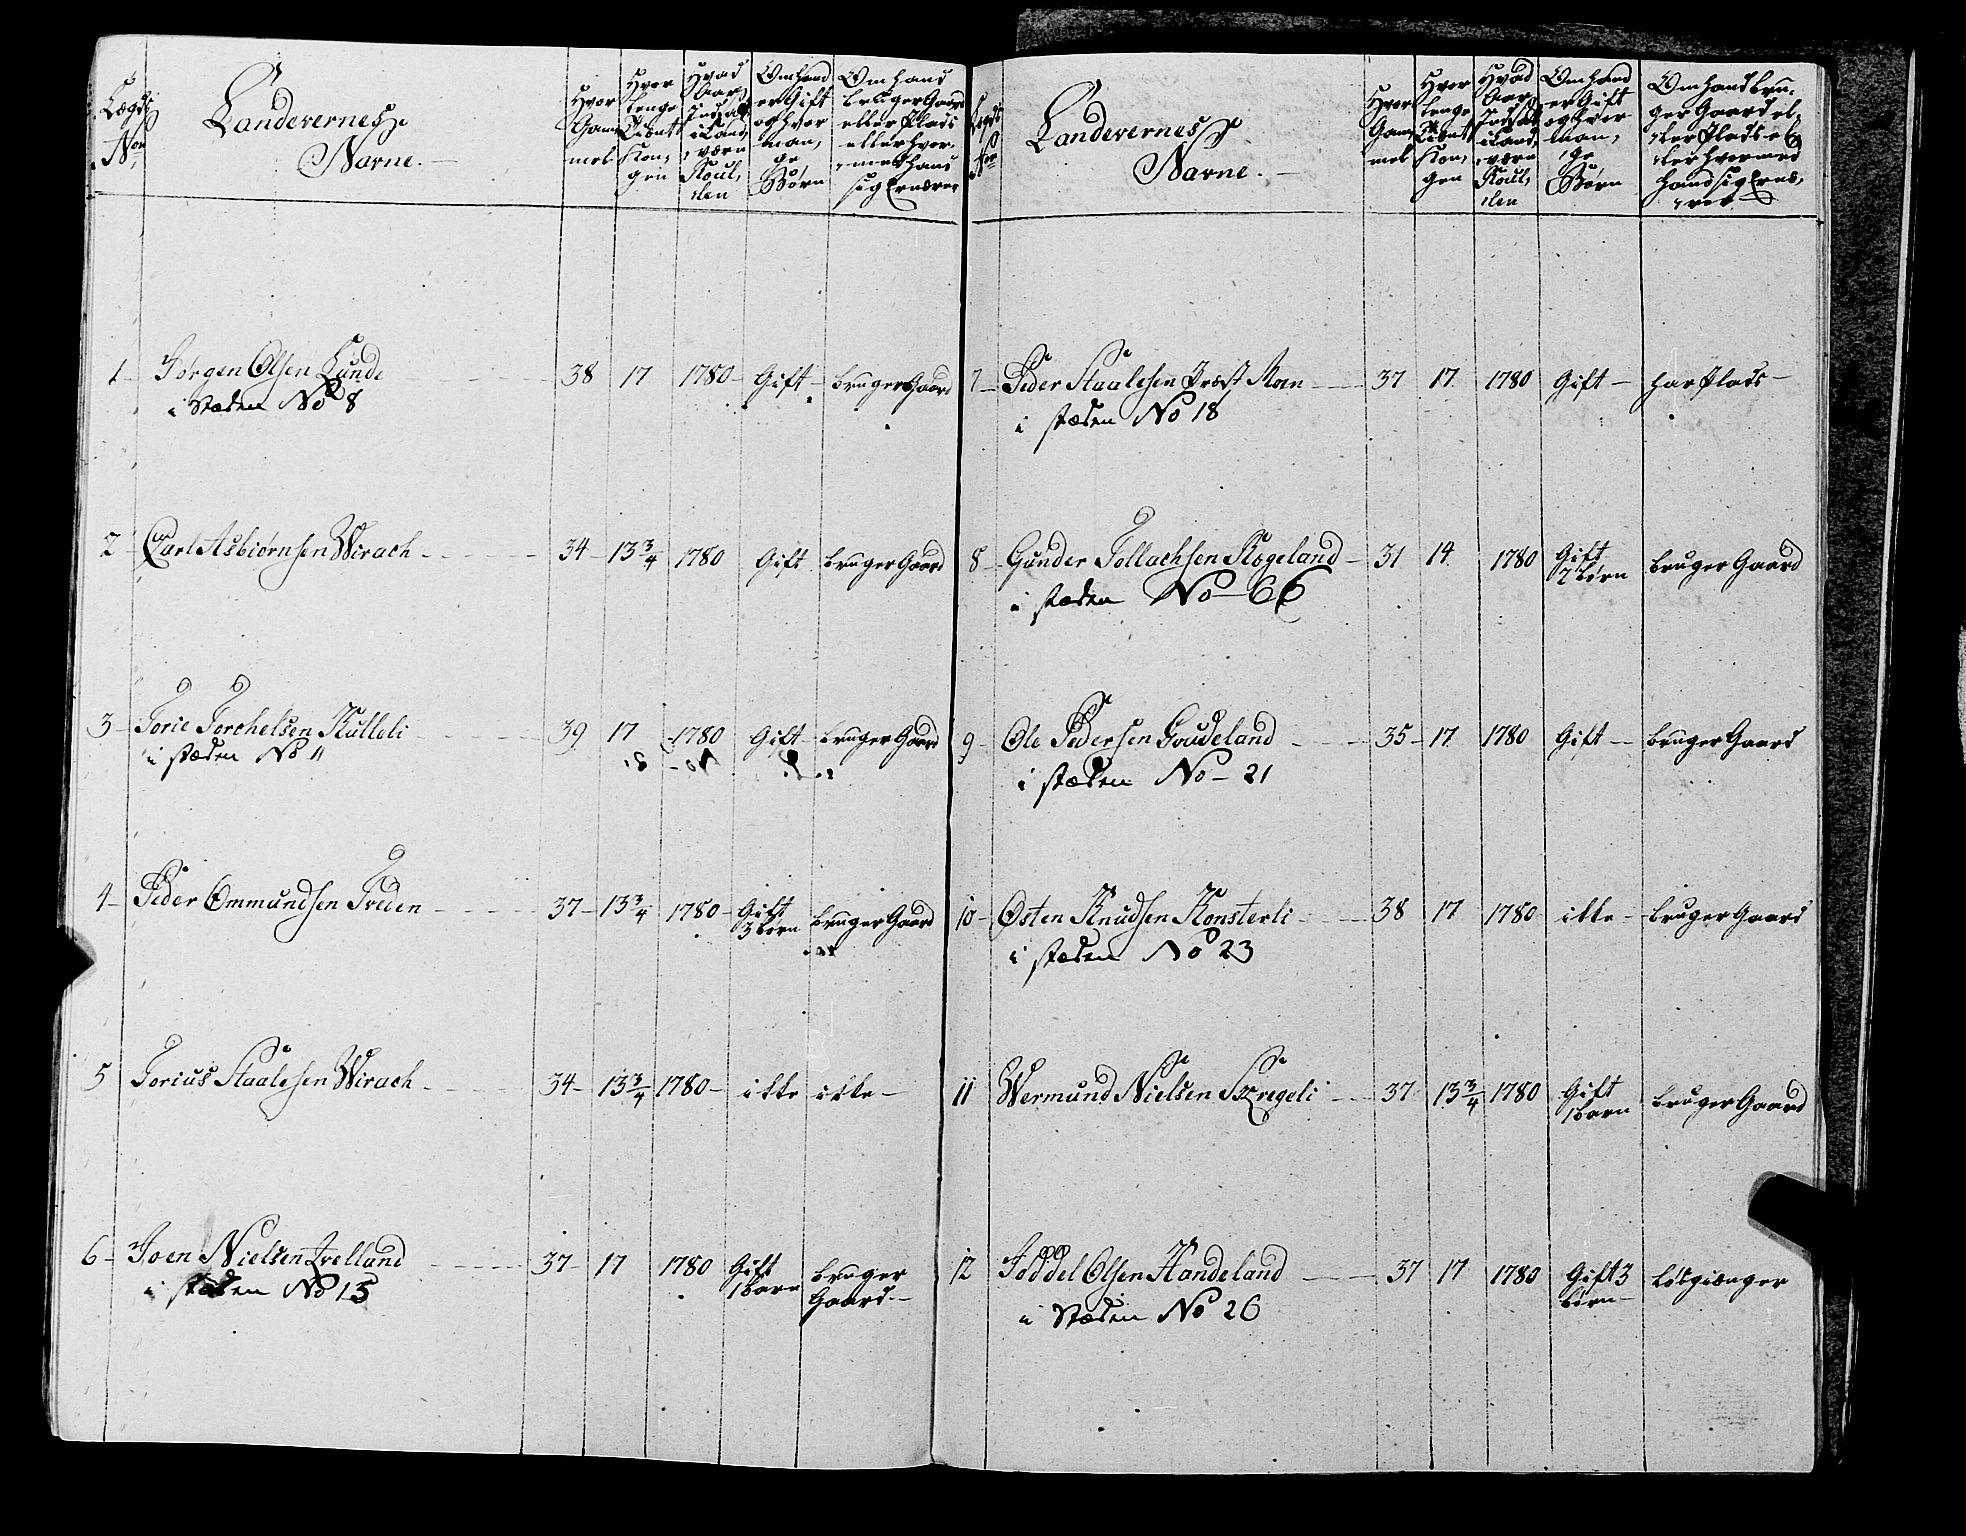 Lægds No
Landevernes
Navne.
Hvor Gammel
Hvor lenge tient Kongen
Hvad Aar indsat i Landværn Roullen
Om hand er Gift og hvor mange Børn
Om hand bruger Gaard eller Plads eller hvormed hand sig Ernærer
1 Jørgen Olsen Lunde 38 17 1780 Gift bruger Gaard
i Stæden No 8
2 Carl Asbiørnsen Wirach 34 13 3/4 1780 Gift bruger Gaard
3 Torie Torchelsen Kulleli 39 17 1780 Gift bruger Gaard
i stæden No 11
4 Peder Ommundsen Tveden 37 13 3/4 1780 Gift 3 børn bruger Gaard
5 Torius Staalesen Wirach 34 13 3/4 1780 ikke ikke
6 Joen Nielsen Ivelland 37 17 1780 Gift 1 barn bruger Gaard
i stæden No 15
Lægds No
Landevernes
Navne.
Hvor Gammel
Hvor lenge tient Kongen
Hvad Aar indsat i Landværn Roullen
Om hand er Gift og hvor mange Børn
Om hand bruger Gaard eller Plads eller hvormed hand sig Ernærer
7 Peder Staalesen Præst 37 17 1780 Gift har Plads
i stæden No 18
8 Gunder Tollachsen Skogeland 31 14 1780 Gift 2 børn bruger Gaard
i stæden No 66
9 Ole Pedersen Goudeland 35 17 1780 Gift bruger Gaard
i stæden No 21
10 Østen Knudsen Konsterli 38 17 1780 ikke bruger Gaard
i stæden No 23
11 Wermund Nielsen 37 13 3/4 1780 Gift 1 barn bruger Gaard
12 Joddel Olsen Handeland 37 17 1780 Gift 3 børn løsgiænger
i Stæden No 26